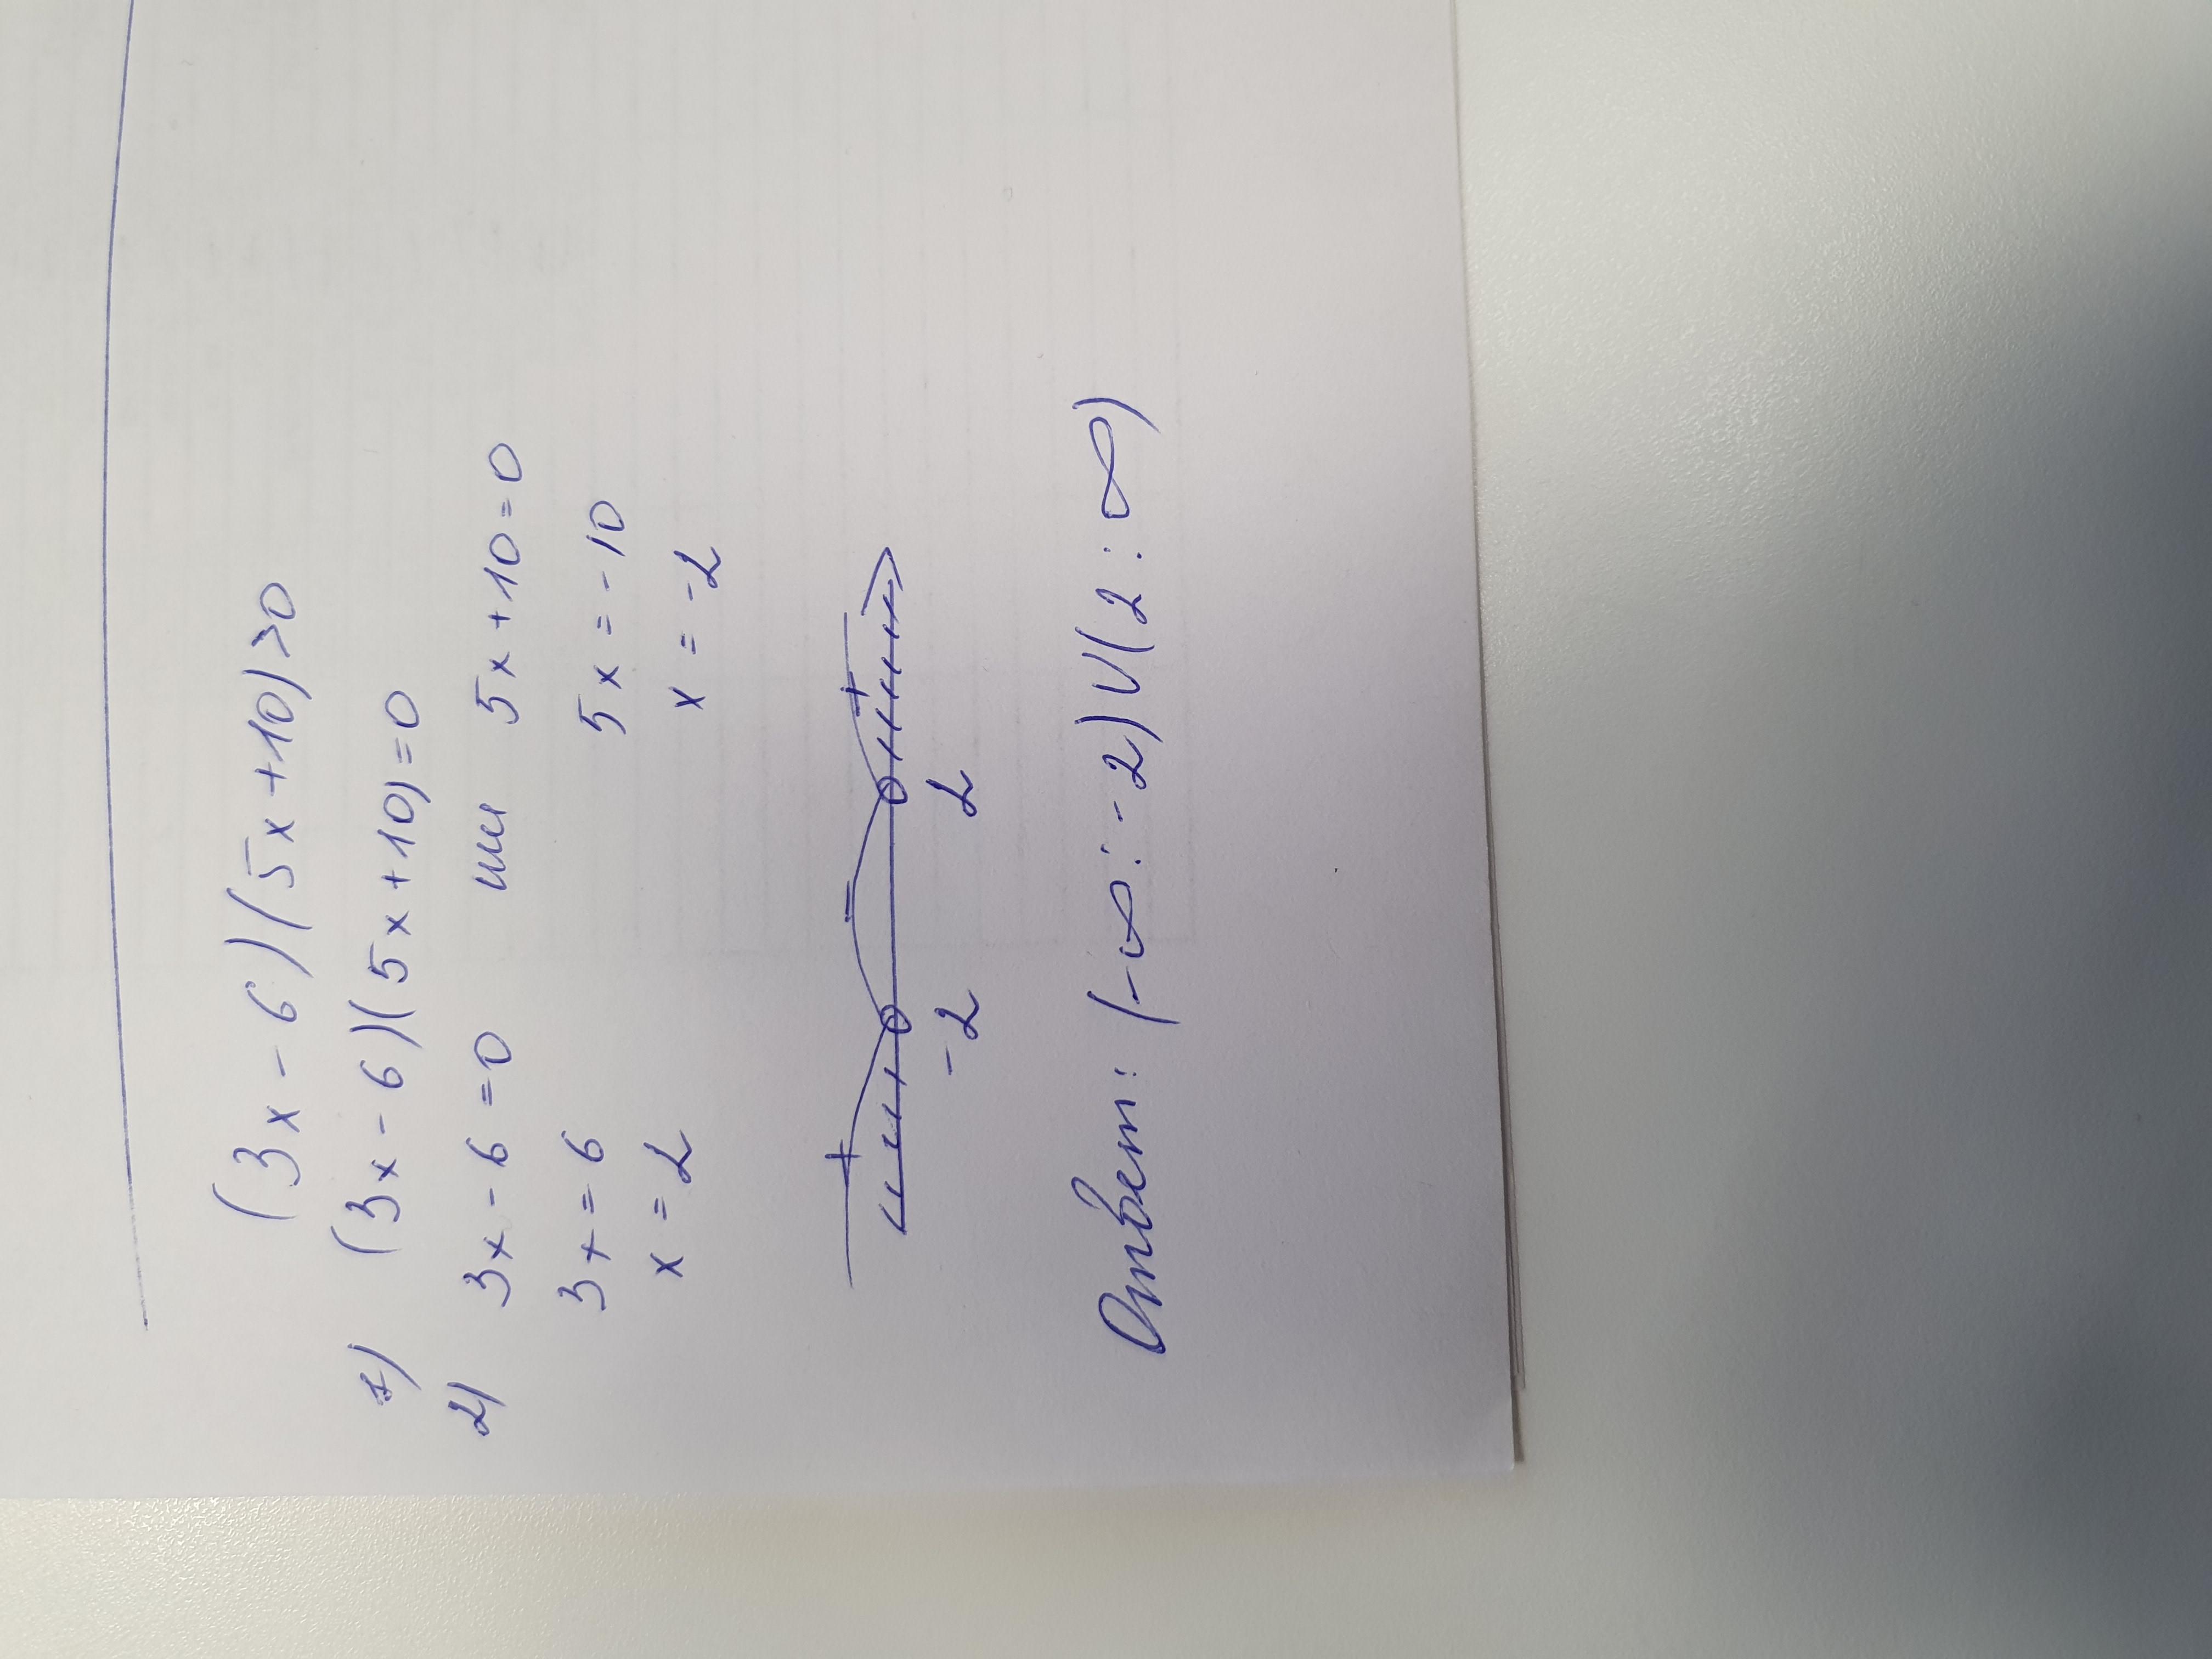 (3x - 6)(5x + 10) > 0
1) (3x - 6)(5x + 10) = 0
2) 3x - 6 = 0 или 5x + 10 = 0
3x = 6 5x = -10
x = 2 x = -2
+ - +
-2 2
Ответ: (-∞: -2) U (2: ∞)